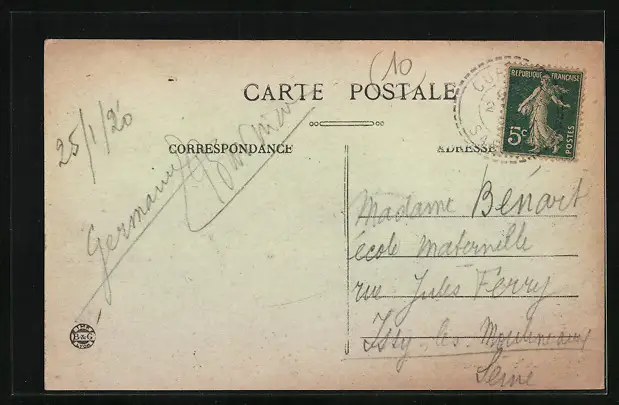 (10)
CARTE POSTALE
CORRESPONDANCE
ADRESSE
25/1/20
Germaine
RÉPUBLIQUE FRANÇAISE
5c
POSTES
Madame Bénart
école maternelle
rue Jules Ferry
Issy-les-Moulineaux
Seine
IMP.
B&G
LYON